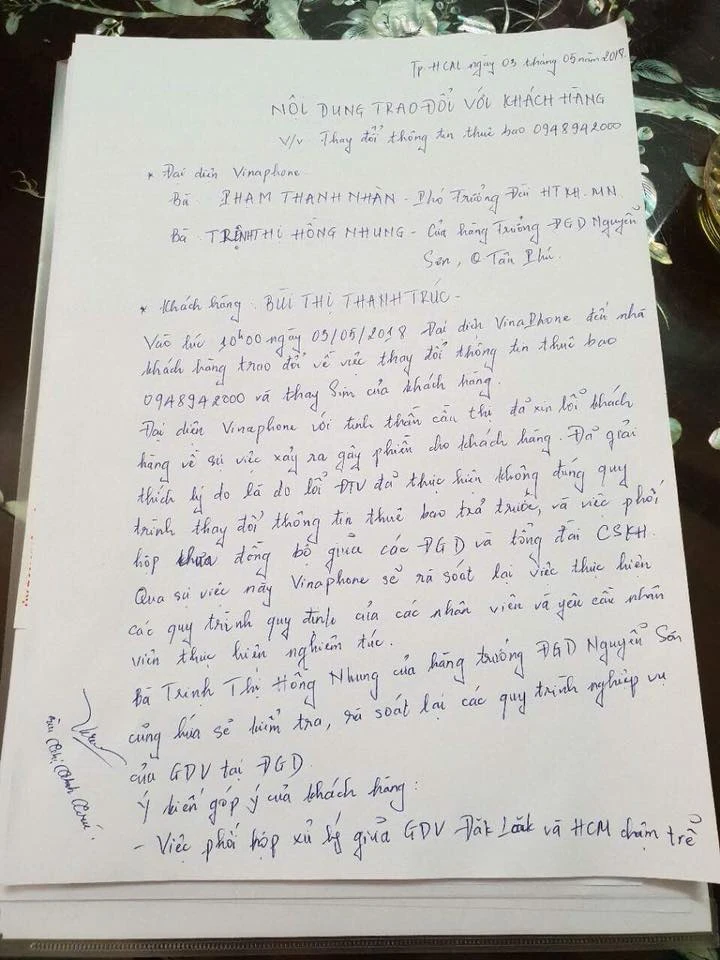 Tp.HCM ngày 03 tháng 05 năm 2018.
NỘI DUNG TRAO ĐỔI VỚI KHÁCH HÀNG
V/v Thay đổi thông tin thuê bao 0948942000
* Đại diện Vinaphone.
Bà PHẠM THANH NHÀN - Phó Trưởng Đài HTKH.MN.
Bà TRỊNH THỊ HỒNG NHUNG - Cửa hàng Trưởng ĐGD Nguyễn
Sơn, Q Tân Phú.
* Khách hàng: BÙI THỊ THANH TRÚC -
Vào lúc 10h00 ngày 03/05/2018 Đại diện VinaPhone đến nhà
khách hàng trao đổi về việc thay đổi thông tin thuê bao
0948942000 và thay Sim của khách hàng.
Đại diện Vinaphone với tinh thần cầu thị đã xin lỗi khách
hàng về sự việc xảy ra gây phiền cho khách hàng. Đã giải
thích lý do là do lỗi ĐTV đã thực hiện không đúng quy
trình thay đổi thông tin thuê bao trả trước, và việc phối
hợp chưa đồng bộ giữa các ĐGD và tổng đài CSKH.
Qua sự việc này Vinaphone sẽ rà soát lại việc thực hiện
các quy trình quy định của các nhân viên và yêu cầu nhân
viên thực hiện nghiêm túc.
Bà Trịnh Thị Hồng Nhung cửa hàng trưởng ĐGD Nguyễn Sơn
cũng hứa sẽ kiểm tra, rà soát lại các quy trình nghiệp vụ
của GDV tại ĐGD.
Ý kiến góp ý của khách hàng:
- Việc phối hợp xử lý giữa GDV Đăk Lăk và HCM chậm trễ
Bùi Thị Thanh Trúc.